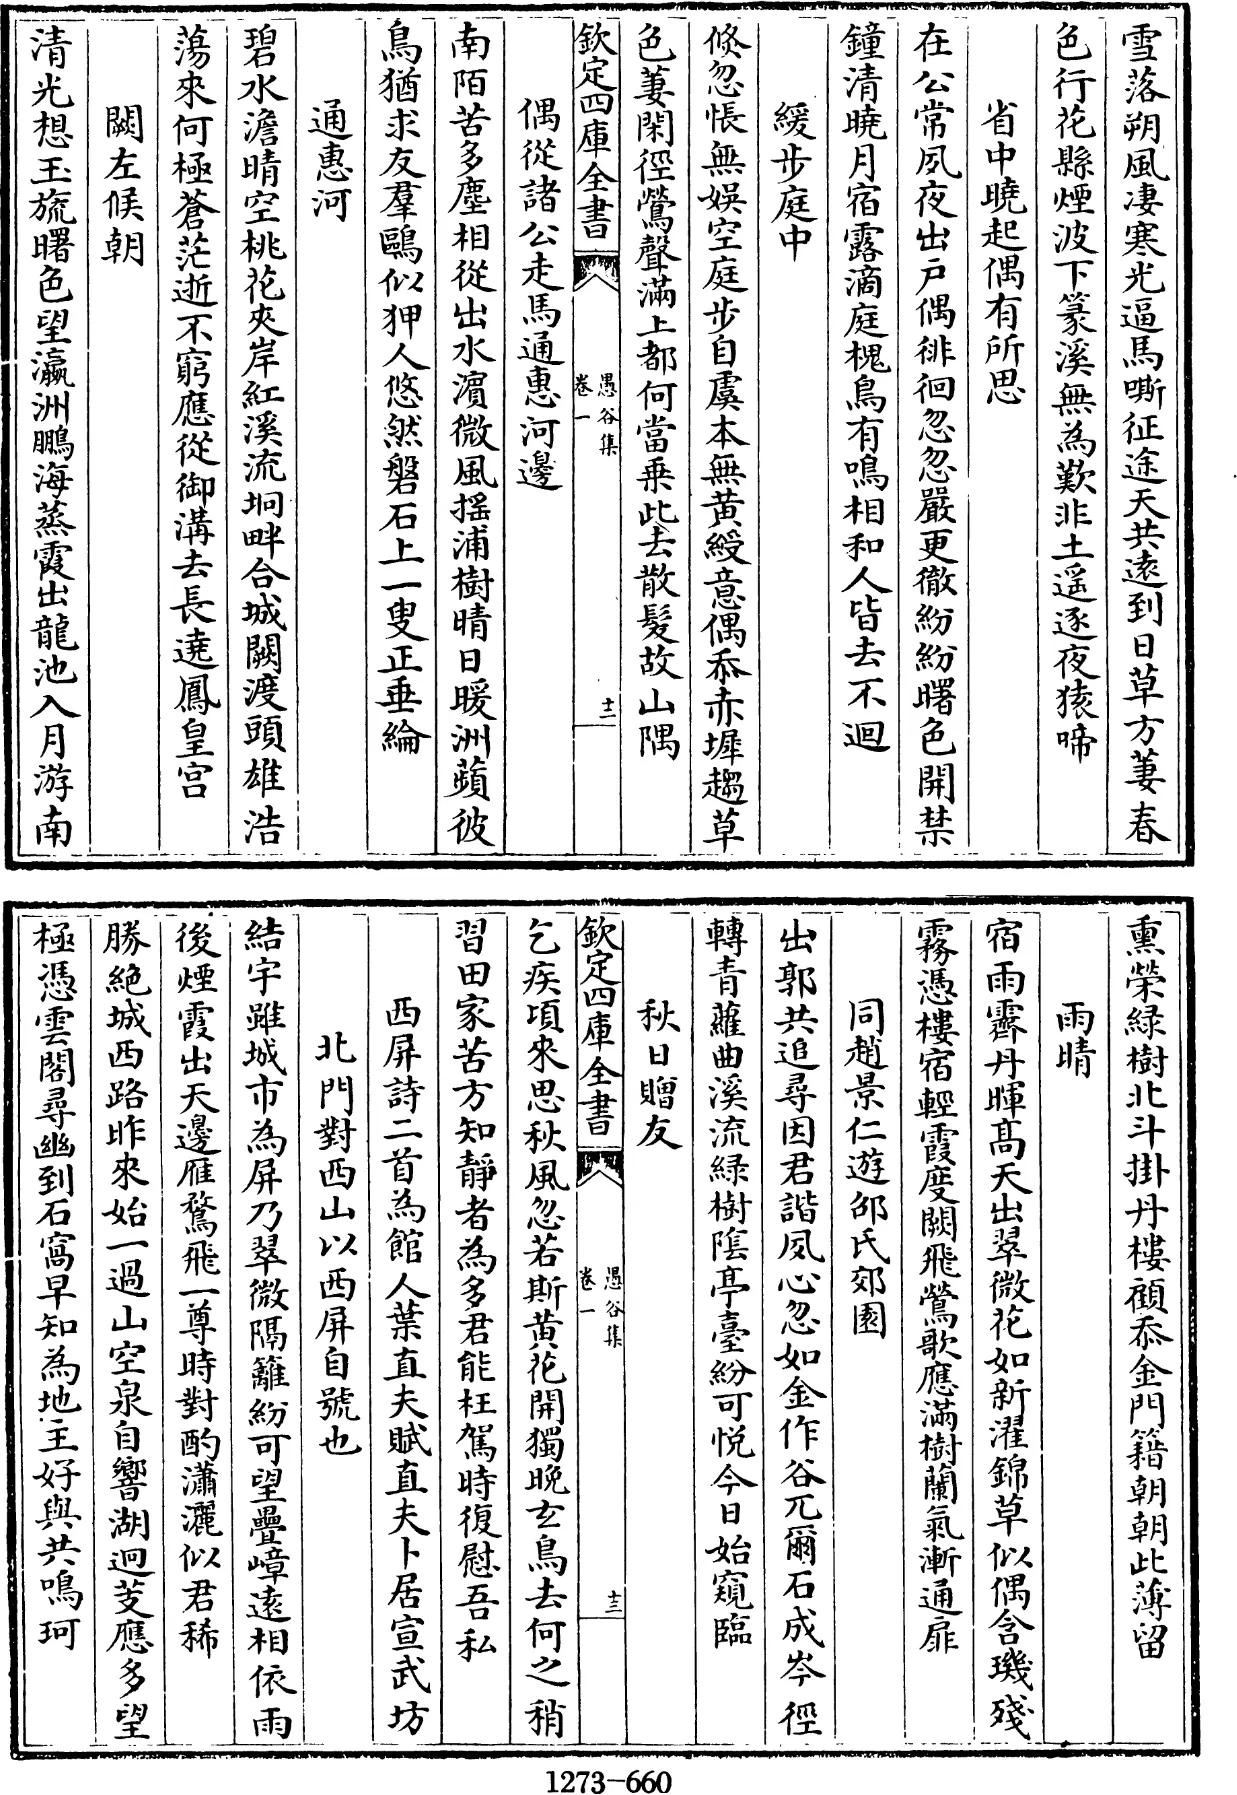 雪落朔風凄寒光逼馬嘶征途天共逺到日草方萋春
色行花縣煙波下篆溪無為歎非土遥逐夜猿啼
省中曉起偶有所思
在公常夙夜出戸偶徘徊忽忽嚴更徹紛紛曙色開禁
鐘清曉月宿露滴庭槐鳥有鳴相和人皆去不迴
緩步庭中
倐忽悵無娱空庭步自虞本無黄綬意偶忝赤墀趨草
色萋閑徑鶯聲滿上都何當乗此去散髮故山隅
欽定四庫全書
愚谷集
卷一
十二
偶從諸公走馬通惠河邊
南陌苦多塵相從出水濵微風揺浦樹晴日暖洲蘋彼
鳥猶求友羣鷗似狎人悠然磐石上一叟正垂綸
通惠河
碧水澹晴空桃花夾岸紅溪流坰畔合城闕渡頭雄浩
蕩來何極蒼茫逝不窮應從御溝去長遶鳳皇宫
闕左候朝
清光想玉旒曙色望瀛洲鵬海蒸霞出龍池入月游南
熏榮緑樹北斗掛丹樓顧忝金門籍朝朝此薄留
雨晴
宿雨霽丹暉髙天出翠微花如新濯錦草似偶含璣殘
霧憑樓宿輕霞度闕飛鶯歌應滿樹蘭氣漸通扉
同趙景仁遊邵氏郊園
出郭共追尋因君諧夙心忽如金作谷兀爾石成岑徑
轉青蘿曲溪流緑樹陰亭臺紛可悦今日始窺臨
秋日贈友
欽定四庫全書
愚谷集
卷一
十三
乞疾頃來思秋風忽若斯黄花開獨晩玄鳥去何之稍
習田家苦方知靜者為多君能枉駕時復慰吾私
西屏詩二首為館人葉直夫賦直夫卜居宣武坊
北門對西山以西屏自號也
結宇雖城市為屏乃翠微隔籬紛可望疊嶂逺相依雨
後煙霞出天邊雁鶩飛一尊時對酌瀟灑似君稀
勝絶城西路昨來始一過山空泉自響湖迥芰應多望
極憑雲閣尋幽到石窩早知為地主好與共鳴珂
1273-660